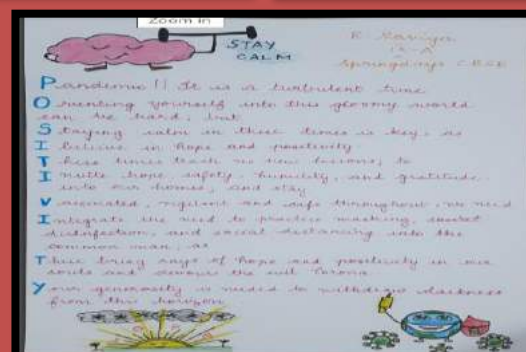 Zoom In
STAY
CALM
R. Kaviya
IX-A
Springdays CBSE
Pandemic!! It is a turbulent time
Orienting yourself into this gloomy world
can be hard, but
Staying calm in these times is key, as
I believe in hope and positivity
These times teach us new lessons, to
Invite hope, safety, humility, and gratitude
into our homes, and stay
Vaccinated, vigilent and safe throughout, we need
Integrate the need to practice masking,
disinfection, and social distancing into the
common man, as
These bring rays of hope and positivity in our
souls and devour the evil Corona
Your generosity is needed to withdraw darkness
from the horizon